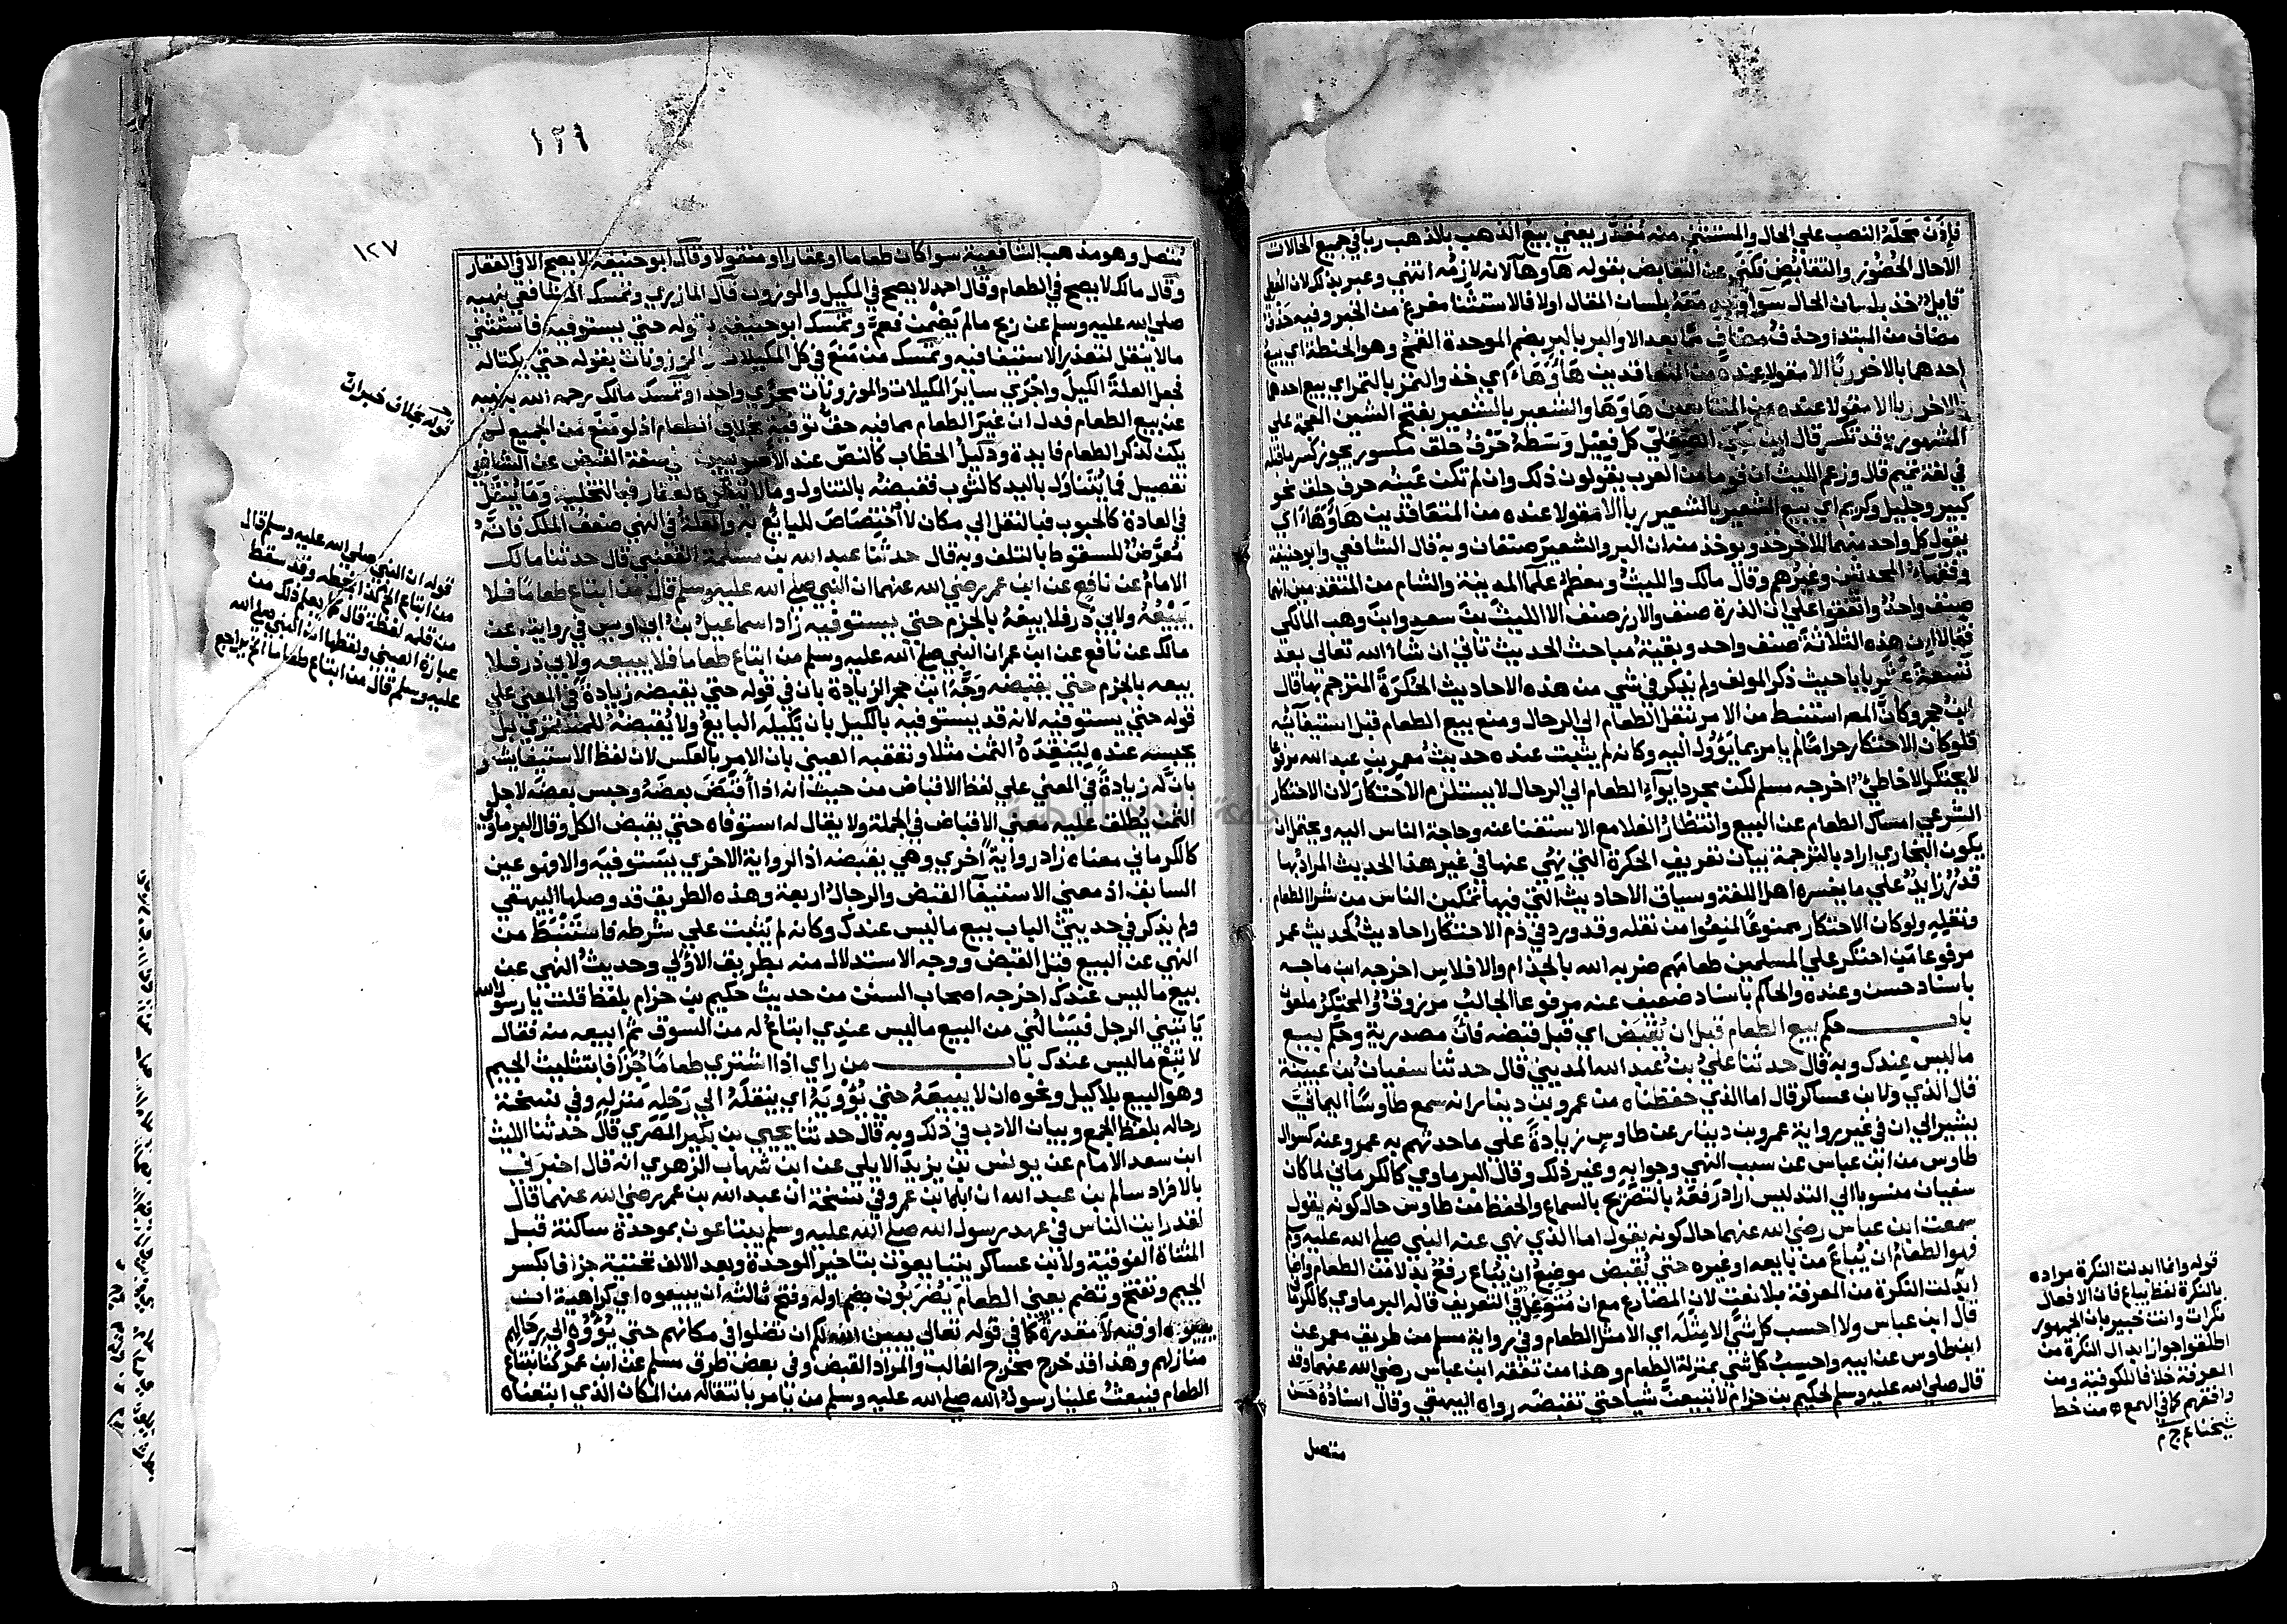 فإذن محله النصب علي الحال والمستثني منه مقدر يعني بيع الذهب بالذهب ربا في جميع الحالات
الاحال الحضور والتقابض فكني عن التقابض بقوله هآ وهآ لانه لازمه انتهي وعبر بذلك لان المعطي
قايل خذ بلسان الحال سوآ وجد معه بلسان المقال اولا فالاستثنا مفرغ من الخبر وفيه حذف
مضاف من المبتدا وحذف مضاف مما بعد الا والبر بالبر بضم الموحدة القمح وهو الحنطة اي بيع
احدهما بالاخر ربا الا مقولا عنده من المتعاقدين هاؤهاء اي خذ والتمر بالتمر اي بيع احدهما
بالاخر ربا الا مقولا عنده من المتبايعين هاوها والشعير بالشعير بفتح الشين المعجمة علي
المشهور وقد تكسر قال ابن مكي الصقلي كل فعيل وسطه حرف حلق مكسور يجوز كسر ماقبله
في لغة تميم قال وزعم الليث ان قوما من العرب يقولون ذلك وان لم تكن عينه حرف حلق نحو
كبير وجليل وكريم اي بيع الشعير بالشعير ربا الا مقولا عنده من المتعاقدين هاؤهاء اي
يقول كل واحد منهما للاخر خذ ويوخذ منه ان البر والشعير صنفان وبه قال الشافعي وابوحنيفة
وفقهاء المحدثين وغيرهم وقال مالك والليث ومعظم علما المدينة والشام من المتقدمين انهما
صنف واحد واتفقوا علي ان الذرة صنف والارز صنف الا الليث بن سعد وابن وهب المالكي
فقالا ان هذه الثلاثة صنف واحد وبقية مباحث الحديث تاتي ان شاء الله تعالي بعد
تسعة عشر بابا حيث ذكر المولف ولم يذكر في شي من هذه الاحاديث الحكرة المترجم بها قال
ابن حجر وكان المص استنبط من الامر بنقل الطعام الي الرحال ومنع بيع الطعام قبل استيفآئه
فلو كان الاحتكار حراما لم يامر بما يؤول اليه وكانه لم يثبت عنده حديث معمر بن عبد الله مرفوعا
لا يحتكر الاخاطئ اخرجه مسلم لكن مجرد ايوآء الطعام الي الرحال لا يستلزم الاحتكار لان الاحتكار
الشرعي امساك الطعام عن البيع وانتظار الغلا مع الاستغنا عنه وحاجة الناس اليه ويحتمل ان
يكون البخاري اراد بالترجمة بيان تعريف الحكرة التي نهي عنها في غير هذا الحديث المراد بها
قدر زايد علي ما يفسره اهل اللغة وسياق الاحاديث التي فيها تمكين الناس من شرا الطعام
ونقله ولو كان الاحتكار ممنوعا لمنعوا من نقله وقد ورد في ذم الاحتكار احاديث كحديث عمر
مرفوعا من احتكر علي المسلمين طعامهم ضربه الله بالجذام والافلاس اخرجه ابن ماجه
باسناد حسن وعنده والحاكم باسناد ضعيف عنه مرفوعا الجالب مرزوق والمحتكر ملعون
باب حكم بيع الطعام قبل ان يقبض اي قبل قبضه فان مصدرية وحكم بيع
ما ليس عندك وبه قال حدثنا علي بن عبد الله المديني قال حدثنا سفيان بن عيينة
قال الذي ولابن عساكر قال اما الذي حفظناه من عمرو بن دينار انه سمع طاوسا اليماني
يشير الي ان في غير رواية عمرو بن دينار عن طاوس زيادة علي ما حدثهم به عمرو عنه كسوال
طاوس من ابن عباس عن سبب النهي وجوابه وغير ذلك وقال البرماوي كالكرماني لما كان
سفيان منسوبا الي التدليس اراد رفعه بالتصريح بالسماع والحفظ من طاوس حال كونه يقول
سمعت ابن عباس رضي الله عنهما حال كونه يقول اما الذي نهي عنه النبي صلي الله عليه وسلم
فهو الطعام ان يباع من بايعه او غيره حتي يقبض موضع ان يباع رفع بدلا من الطعام وانما
ابدلت النكرة من المعرفة بلا نعت لان المضارع مع ان متوغل في التعريف قاله البرماوي كالكرماني
قال ابن عباس ولا احسب كل شئ الا مثله اي الا مثل الطعام وفي رواية مسلم من طريق معمر عن
ابن طاوس عن ابيه واحسب كل شي بمنزلة الطعام وهذا من تفقه ابن عباس رضي الله عنهما وقد
قال صلي الله عليه وسلم لحكيم بن حزام لا تبيعن شيا حتي تقبضه رواه البيهقي وقال اسناده حسن
متصل
قوله وانما ابدلت النكرة مراده
بالنكرة لفظ يباع فان الافعال
نكرات وانت خبير بان الجمهور
اطلقوا جواز ابدال النكرة من
المعرفة خلافا للكوفية ومن
وافقهم كما في الهمع ه من خط
شيخنا ع ج م
١٢٦
١٢٧
متصل وهو مذهب الشافعية سوا كان طعاما او عقارا او منقولا وقال ابو حنيفة لا يصح الا في العقار
وقال مالك لا يصح في الطعام وقال احمد لا يصح في المكيل والموزون قال المازري وتمسك الشافعي بنهيه
صلي الله عليه وسلم عن ربح مالم يضمن فعم وتمسك ابو حنيفة بقوله حتي يستوفيه فاستثني
مالا ينقل لتعذر الاستيفا فيه وتمسك من منع في كل المكيلات والموزونات بقوله حتي يكتاله
فجعل العلة الكيل واجري ساير المكيلات والموزونات مجري واحدا وتمسك مالك رحمه الله بنهيه
عن بيع الطعام فدل ان غير الطعام مما فيه حق توفية بخلاف الطعام اذ لو منع من الجميع لم
يكن لذكر الطعام فايدة ودليل الخطاب كالنص عند الاصوليين وصفة القبض عن الشافعي
تفصيل فما يتناول باليد كالثوب فقبضه بالتناول ومالا ينقل كالعقار فبالتخلية وما ينقل
في العادة كالحبوب فبالنقل الي مكان لا اختصاص للبايع به والعلة في النهي ضعف الملك فانه
معرض للسقوط بالتلف وبه قال حدثنا عبد الله بن مسلمة القعنبي قال حدثنا مالك
الامام عن نافع عن ابن عمر رضي الله عنهما ان النبي صلي الله عليه وسلم قال من ابتاع طعاما فلا
يبيعه ولابي ذر فلا يبعه بالجزم حتي يستوفيه زاد اسماعيل بن ابي اويس في روايته عن
مالك عن نافع عن ابن عمر ان النبي صلي الله عليه وسلم من ابتاع طعاما فلا يبيعه ولابي ذر فلا
يبعه بالجزم حتي يقبضه وجه ابن حجر الزيادة بان في قوله حتي يقبضه زيادة في المعني علي
قوله حتي يستوفيه لانه قد يستوفيه بالكيل بان يكيله البايع ولا يقبضه للمشتري بل
يحبسه عنده لينقده الثمن مثلا وتعقبه العيني بان الامر بالعكس لان لفظ الاستيفا يشعر
بان له زيادة في المعني علي لفظ الاقباض من حيث انه اذا اقبض بعضه وحبس بعضه لاجل
الثمن يطلق عليه معني الاقباض في الجملة ولا يقال له استوفاه حتي يقبض الكل وقال البرماوي
كالكرماني معناه زاد رواية اخري وهي يقبضه اذ الرواية الاخري يستوفيه والا فهو عين
السابق اذ معني الاستيفآ القبض والرجال اربعة وهذه الطريق قد وصلها البيهقي
ولم يذكر في حديثي الباب بيع ماليس عندك وكانه لم يثبت علي شرطه فاستنبط من
النهي عن البيع قبل القبض ووجه الاستدلال منه بطريق الاولي وحديث النهي عن
بيع ماليس عندك اخرجه اصحاب السنن من حديث حكيم بن حزام بلفظ قلت يا رسول الله
ياتيني الرجل فيسالني من البيع ماليس عندي ابتاع له من السوق ثم ابيعه منه فقال
لا تبع ماليس عندك باب من راي اذا اشتري طعاما جزافا بتثليث الجيم
وهو البيع بلا كيل ونحوه ان لا يبيعه حتي يؤويه اي ينقله الي رحله منزله وفي نسخة
رحاله بلفظ الجمع وبيان الادب في ذلك وبه قال حدثنا يحيي بن بكير المصري قال حدثنا الليث
ابن سعد الامام عن يونس بن يزيد الايلي عن ابن شهاب الزهري انه قال اخبرني
بالافراد سالم بن عبد الله ان اباه ابن عمر وفي نسخة ان عبد الله بن عمر رضي الله عنهما قال
لقد رايت الناس في عهد رسول الله صلي الله عليه وسلم يبتاعون بموحدة ساكنة قبل
المثناة الفوقية ولابن عساكر يتبايعون بتاخير الموحدة وبعد الالف تحتية جزافا بكسر
الجيم وتفتح وتضم يعني الطعام يضربون بضم اوله وفتح ثالثه ان يبيعوه اي كراهية ان
يبيعوه او فيه لا مقدرة كما في قوله تعالي يبين الله لكم ان تضلوا في مكانهم حتي يؤوه الي رحالهم
منازلهم وهذا قد خرج مخرج الغالب والمراد القبض وفي بعض طرق مسلم عن ابن عمر كنا نبتاع
الطعام فيبعث علينا رسول الله صلي الله عليه وسلم من يامر بانتقاله من المكان الذي ابتعناه
قوله بخلاف خبران
قوله ان النبي صلي الله عليه وسلم قال
من ابتاع الخ كذا بخطه وقد سقط
من قلمه لفظة قال كما يعلم ذلك من
عبارة العيني ولفظها ان النبي صلي الله
عليه وسلم قال من ابتاع طعاما الخ براجع